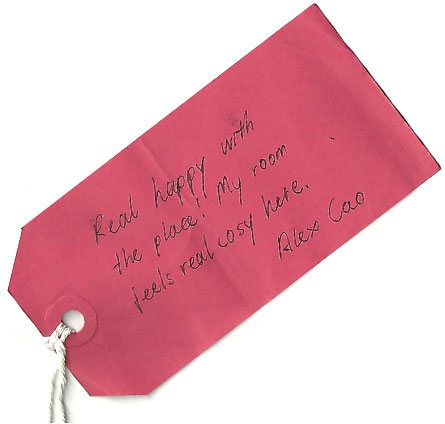 Real happy with
the place! My room
feels real cosy here.
Alex Cao